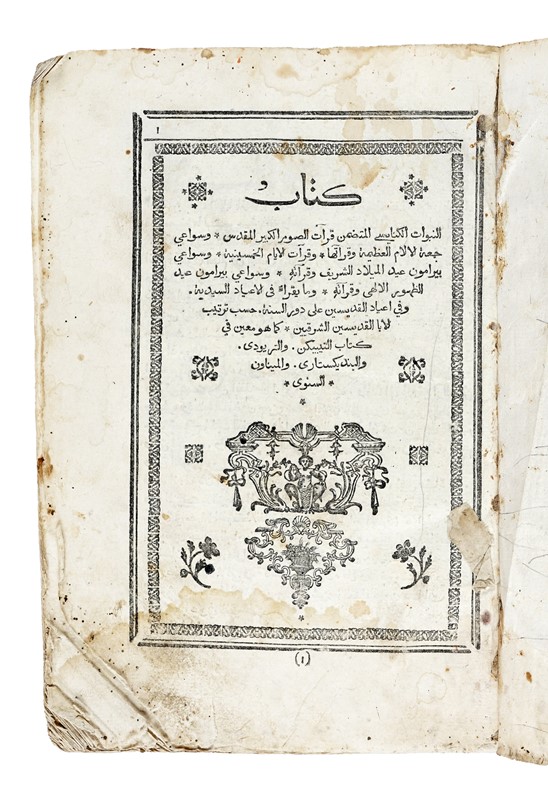 ١
كتاب
النبوات الكنايسي المتضمن قرآت الصوم الكبير المقدس * وسواعي
جمعة لالام العظيمة وقرآتها * وقرآت لايام الخمسينية * وسواعي
بيرامون عيد الميلاد الشريف وقرآته * وسواعي بيرامون عيد
الظهور الالهي وقرآته * وما يقراء في لاعياد السيدية.
وفي اعياد القديسين على دور السنة. حسب ترتيب
لابا القديسين الشرقيين * كما هو معين في
كتاب التيبيكن. والتريودي.
والبنديكستاري. والميناون
* السنوي *
(١)